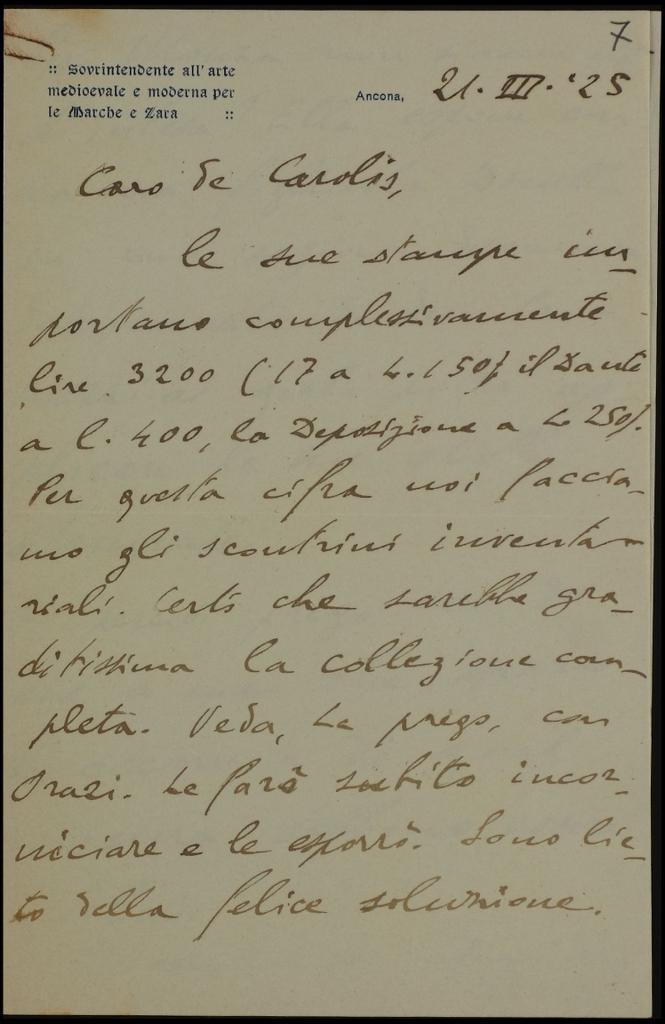 7
:: Sovrintendente all'arte
medioevale e moderna per
le Marche e Zara ::
Ancona, 21. III. '25
Caro de Carolis,
le sue stampe im-
portano complessivamente
lire 3200 (17 a L. 150) il Dante
a l. 400, la Deposizione a L. 250).
Per questa cifra noi faccia-
mo gli scontrini inventa-
riali. Certo che sarebbe gra-
ditissima la collezione com-
pleta. Veda, La prego, con
Orazi. Le farò subito incor-
niciare e le esporrò. Sono lie-
to della felice soluzione.